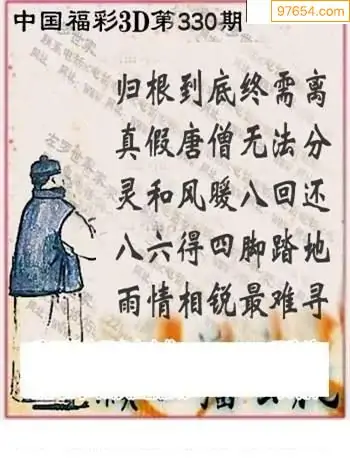 97654.com
中国福彩3D第330期
归根到底终需离
真假唐僧无法分
灵和风暖八回还
八六得四脚踏地
雨情相锐最难寻